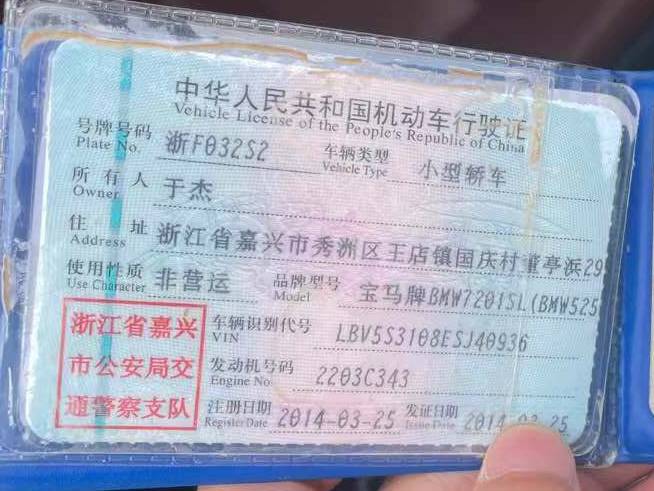 中华人民共和国机动车行驶证
Vehicle License of the People's Republic of China
号牌号码 浙F032S2 车辆类型 小型轿车
Plate No. Vehicle Type
所有人 于杰
Owner
住址 浙江省嘉兴市秀洲区王店镇国庆村董亭浜29
Address
使用性质 非营运 品牌型号 宝马牌BMW7201SL(BMW525
Use Character Model
浙江省嘉兴
市公安局交
通警察支队
车辆识别代号 LBV5S3108ESJ40936
VIN
发动机号码 2203C343
Engine No.
注册日期 2014-03-25 发证日期 2014-03-25
Register Date Issue Date